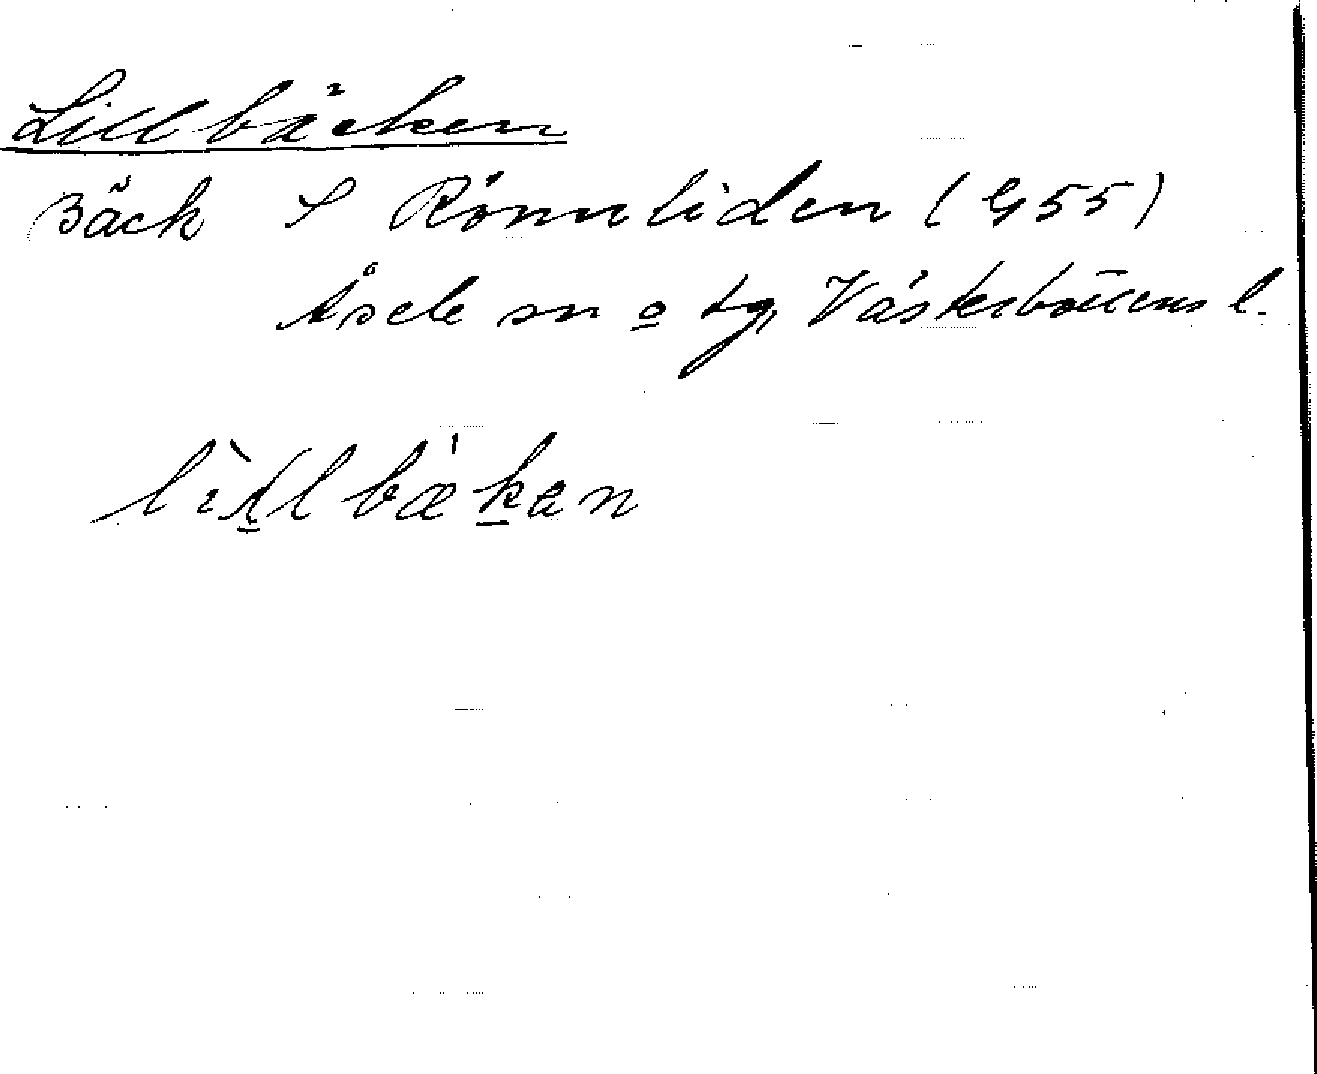 Lillbäcken
Bäck S Rönnliden (G55)
Åsele sn o lg, Västerbottens l.
lìllbæ'kan